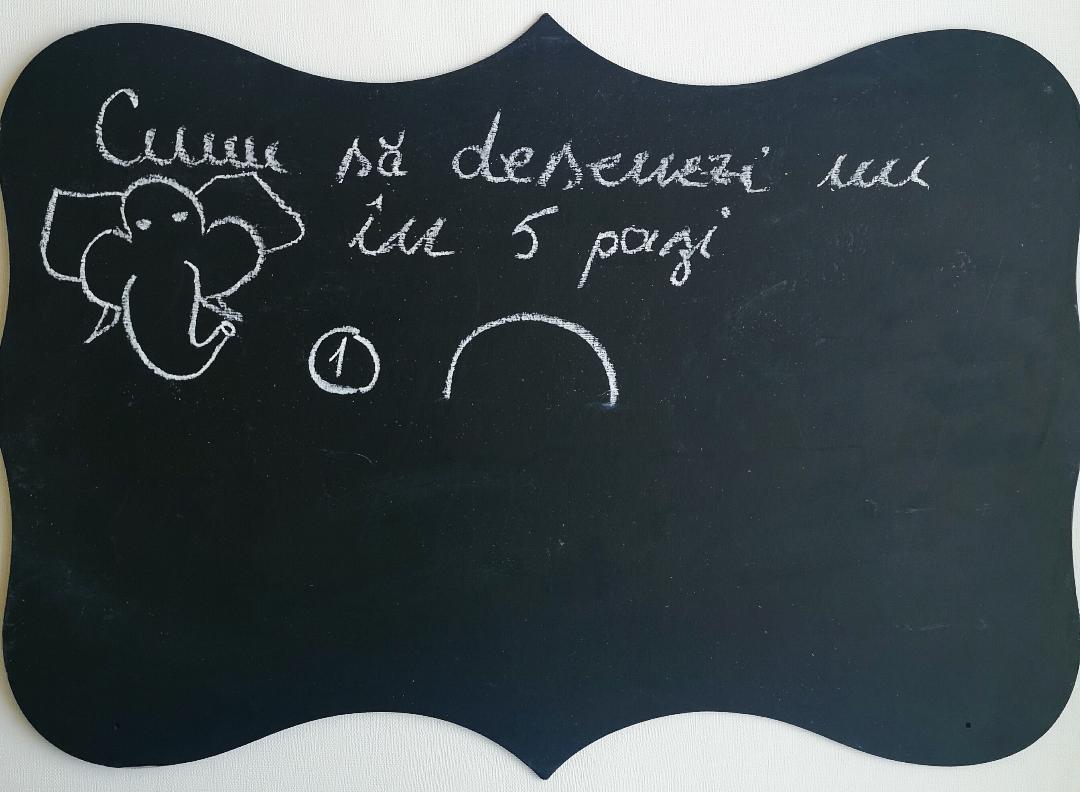 Cum să desenezi un
în 5 pași
1